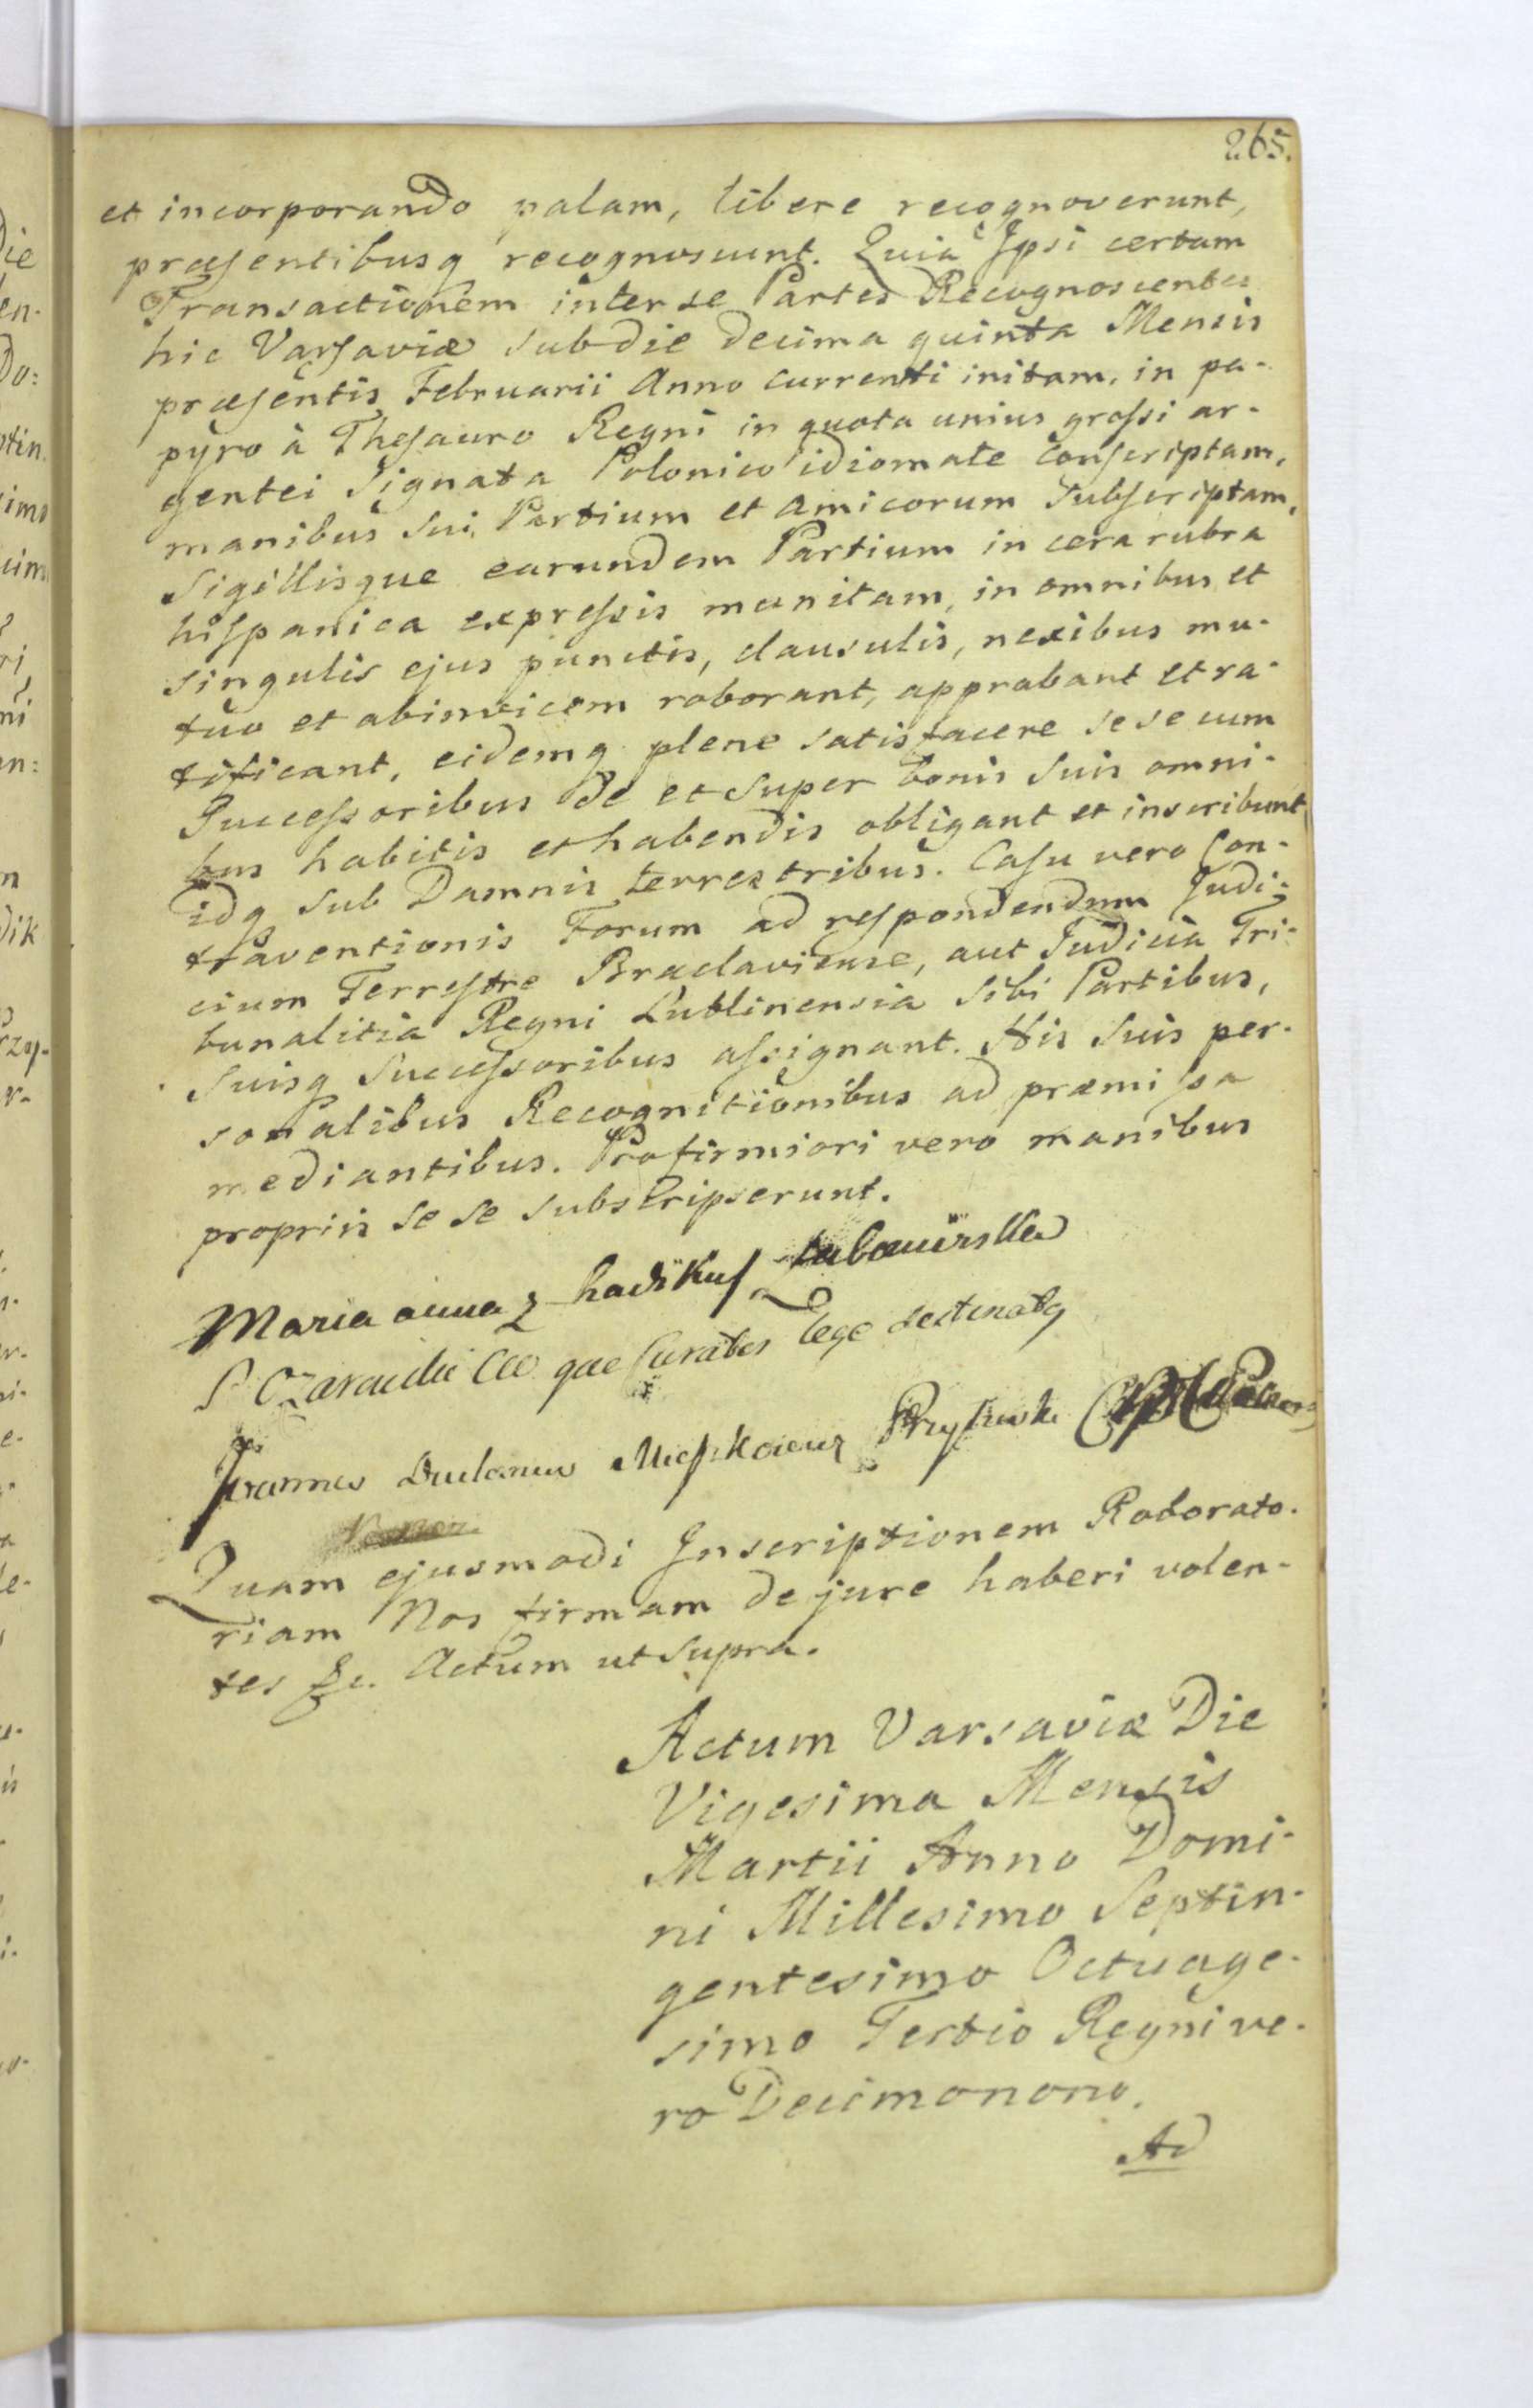 265.
et incorporando palam, libere recognoverunt,
præsentibusq recognoscunt. Quia Ipsi certam
Transactionem inter se Partes Recognoscentes
hic Varsaviæ sub die decima quinta Mensis
præsentis Februarii Anno currenti initam, in pa-
pyro à Thesauro Regni in quota unius grossi ar-
gentei Signata Polonico idiomate conscriptam,
manibus sui, Partium et amicorum subscriptam,
Sigillisque earundem Partium in cera rubra
hispanica expressis munitam, in omnibus et
singulis ejus punctis, clausulis, nexibus mu-
tuo et abinvicem roborant, approbant et ra-
tificant, eidemq plene satisfacere sese cum
Successoribus de et super bonis suis omni-
bus habitis et habendis obligant et inscribunt
idq sub Damnis terrestribus. Casu vero Con-
traventionis Forum ad respondendum Judi-
cium Terrestre Braclaviense, aut Judicia Tri-
bunalitia Regni Lublinensia sibi Partibus,
suisq Successoribus assignant. His suis per-
sonalibus Recognitionibus ad præmissa
mediantibus. Pro firmiori vero manibus
propriis se se subscripserunt.
Maria anna z hadikuf Lubomirska
lege
Joannes
Quam ejusmodi Inscriptionem Roborato-
riam Nos firmam de jure haberi volen-
tes &c. Actum ut supra.
Actum Varsaviæ Die
Vigesima Mensis
Martii Anno Domi-
ni Millesimo Septin-
gentesimo Octuage-
simo Tertio Regni ve-
ro Decimonono.
Ad